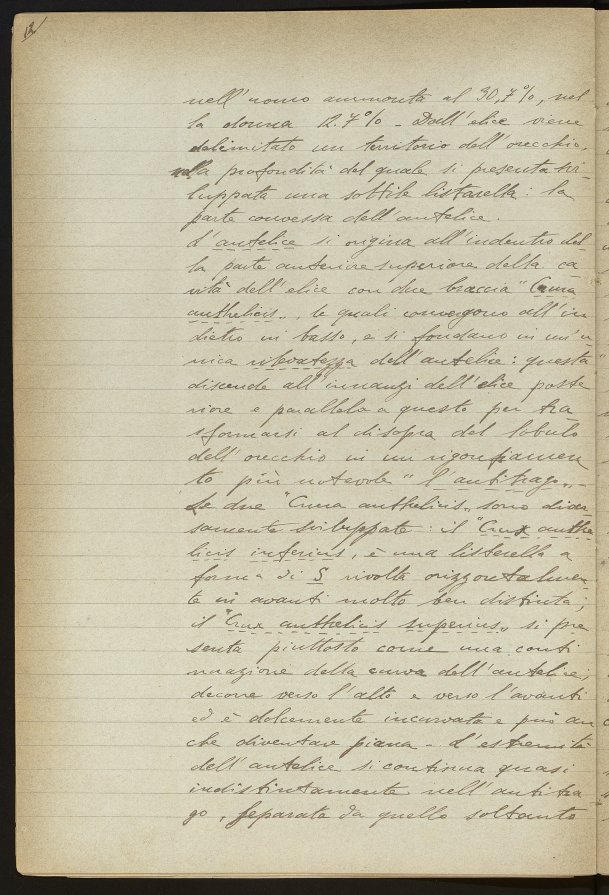 12
nell'uomo ammonta al 30,7%, nel
la donna 12.7% - Dall'elice viene
delimitato un territorio dell'orecchio,
nella profondità del quale si presenta svi-
luppata una sottile listarella: la
parte convessa dell'antelice.
L'antelice si origina all'indentro del
la parte anteriore superiore della ca
vità dell'elice con due braccia "Crura
anthelicis„, le quali convergono all'in
dietro in basso, e si fondano in un'u
nica rilevatezza dell'antelice: questa
discende all'innanzi dell'elice poste
riore e parallela a questo per tra
sformarsi al disopra del lobulo
dell'orecchio in un rigonfiamen
to più notevole "l'antitrago„.-
Le due "Crura anthelicis„ sono diver
samente sviluppate: il "Crux anthe
licis inferius, è una listerella a
forma di S rivolta orizzontalmen
te in avanti molto ben distinta;
il "Crux anthelicis superius„ si pre
senta piuttosto come una conti
nuazione della curva dell'antelice;
decorre verso l'alto e verso l'avanti
ed è dolcemente incurvata e può an
che diventare piana - L'estremità
dell'antelice si continua quasi
indistintamente nell'antitra
go, separata da quello soltanto